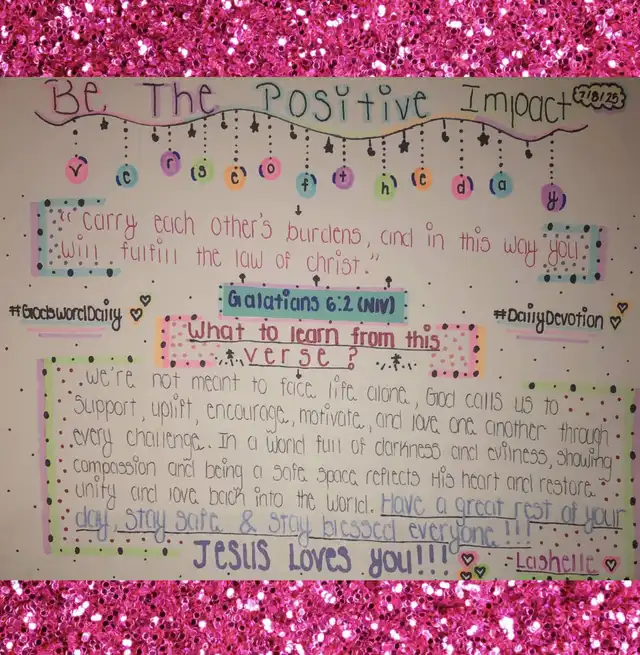 Be The Positive Impact
7/8/25
verse of the day
"Carry each other's burdens, and in this way you
will fulfill the law of christ."
Galatians 6:2 (NIV)
#GodswordDaily
#DailyDevotion
What to learn from this
verse?
We're not meant to face life alone, God calls us to
support, uplift, encourage, motivate, and love one another through
every challenge. In a world full of darkness and evilness, showing
compassion and being a safe space reflects His heart and restore
unity and love back into the world. Have a great rest of your
day, stay safe & stay blessed everyone!!!
Jesus Loves you!!!
-Lashelle